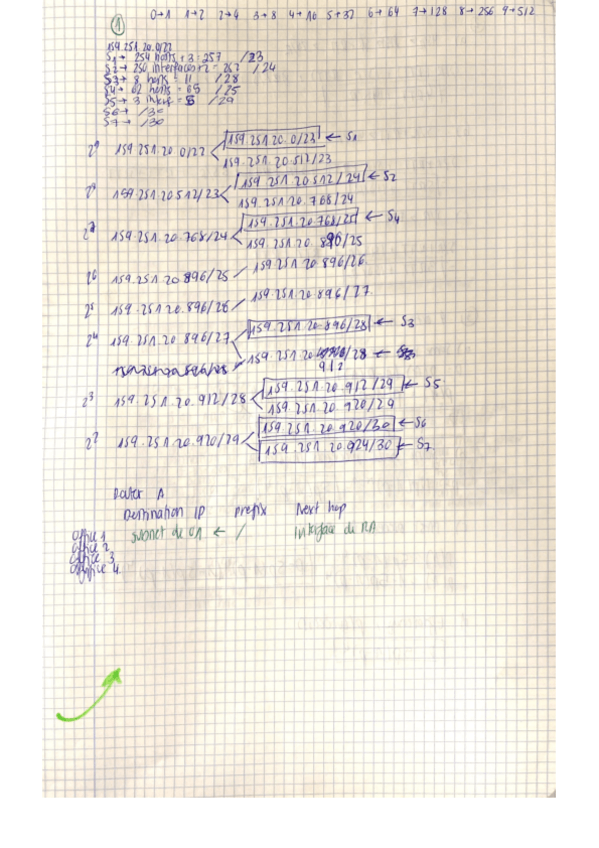 0→1 1→2 2→4 3→8 4→16 5→32 6→64 7→128 8→256 9→512
1
159.251.20.0/22
S1 → 254 hosts + 3 = 257 /23
S2 → 250 interfaces + 2 = /24
S3 → 8 hosts = 11 /28
S4 → 62 hosts = 65 /25
S5 → 3 = 5 /29
S6 → /30
S7 → /30
2⁹ 159.251.20.0/22 159.251.20.0/23 ← S1
159.251.20.512/23
159.251.20.512/23 159.251.20.512/24 ← S2
159.251.20.768/24
159.251.20.768/24 159.251.20.768/25 ← S4
159.251.20.896/25
2⁶ 159.251.20.896/25 159.251.20.896/26
2⁵ 159.251.20.896/26 159.251.20.896/27
2⁴ 159.251.20.896/27 159.251.20.896/28 ← S3
159.251.20. /28 ←
912
2³ 159.251.20.912/28 159.251.20.912/29 ← S5
159.251.20.920/29
2² 159.251.20.920/29 159.251.20.920/30 ← S6
159.251.20.924/30 ← S7
Router A
Destination IP prefix Next hop
office 1 subnet de O1 ← / interface de RA
office 2
office 3
office 4